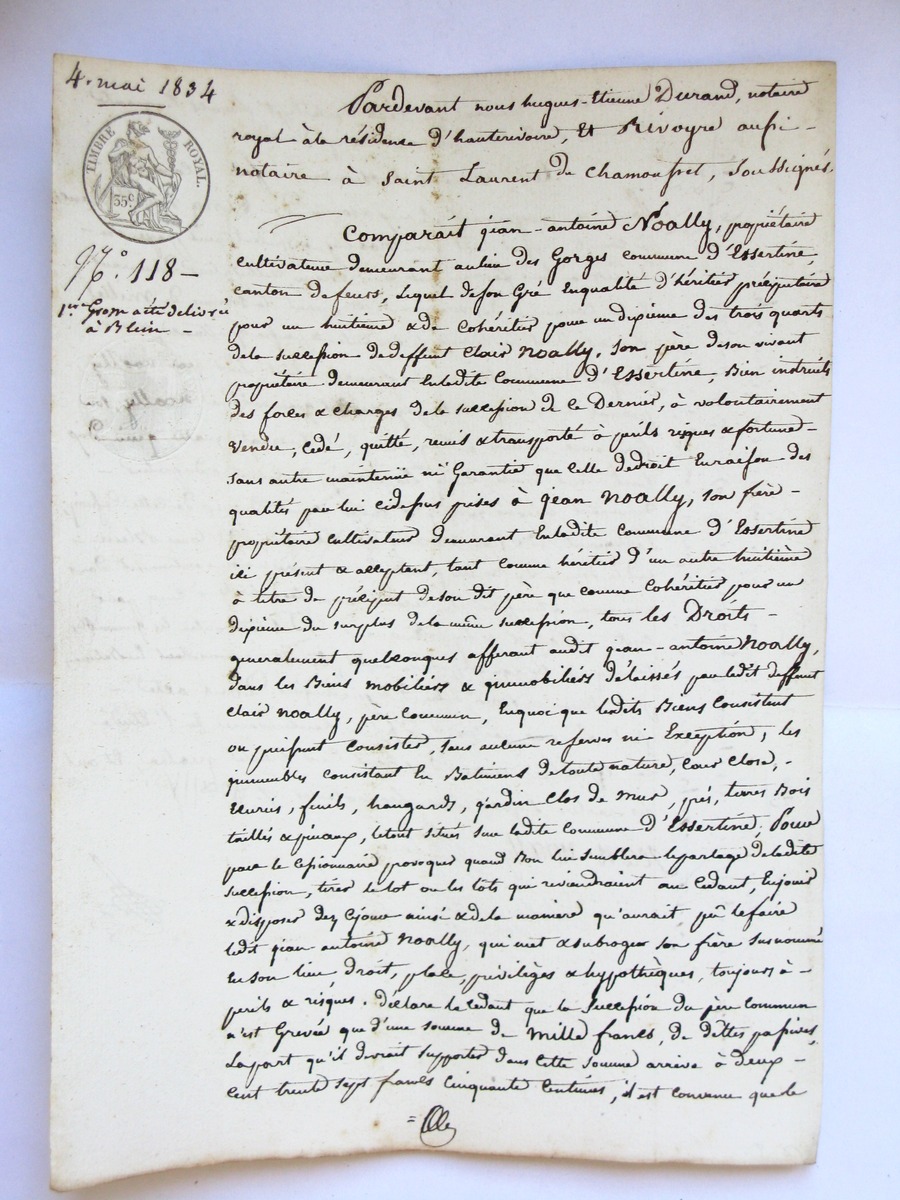 4. mai 1834
TIMBRE ROYAL.
35c
N.° 118 -
1re Grosse a été délivrée
à Blein -
Pardevant nous hugues-Etienne Durand, notaire
royal à la résidence d'hauterivoire, Et Rivoyre aussi -
notaire à Saint Laurent de Chamousset, soussignés.
Comparait jean-antoine Noally, propriétaire
cultivateur demeurant au lieu des Gorges commune d'Essertine,
canton de feurs, lequel de son Gré En qualité d'héritier préciputaire
pour un huitième & de Cohéritier pour un dixième des trois quarts
de la succession de deffunt Clair Noally, son père de son vivant
propriétaire demeurant En ladite Commune d'Essertine, Bien instruits
des forces & charges de la succession de ce Dernier, à volontairement
vendu, cedé, quitté, remis & transporté à perils risques & fortune -
sans autre maintenüe ni Garantie que celle de droit En raison des
qualités par lui cidessus prises à jean Noally, son frère -
propriétaire cultivateur demeurant En ladite Commune d'Essertine
ici présent & acceptant, tant comme héritier d'un autre huitième
à titre de préciput de son dit père que comme Cohéritier pour un
dixième du surplus de la même succession, tous les Droits -
generalement quelconques afferant audit jean-antoine Noally,
dans les Biens mobiliers & immobiliers délaissés par ledit deffunt
Clair Noally, père Commun, En quoi que lesdits Biens Consistent
ou puissent Consister, sans aucune reserves ni Exception; les
immeubles consistant En Batimens de toute nature, Cour Close, -
Ecuries, fenils, hangards, jardin Clos de Mur, prés, terres Bois
taillés & pineaux, le tout situés sur ladite commune d'Essertine; Pour
par le Cessionnaire provoquer quand Bon lui semblera le partage de ladite
succession, tirer le lot ou les lots qui reviendraient au Cedant, En jouir
& disposer dez Cejour ainsi & de la maniere qu'aurait pû le faire
ledit jean antoine Noally, qui met & subroge son frère susnommé
En son lieu, droit, place, privilèges & hypothèques, toujours à -
perils & risques. déclare le Cedant que la succession du père commun
n'est Grevée que d'une somme de Mille francs, de dettes passives,
La part qu'il devrait supporter dans cette somme arrive à deux -
cent trente sept francs Cinquante Centimes, il est convenu que le